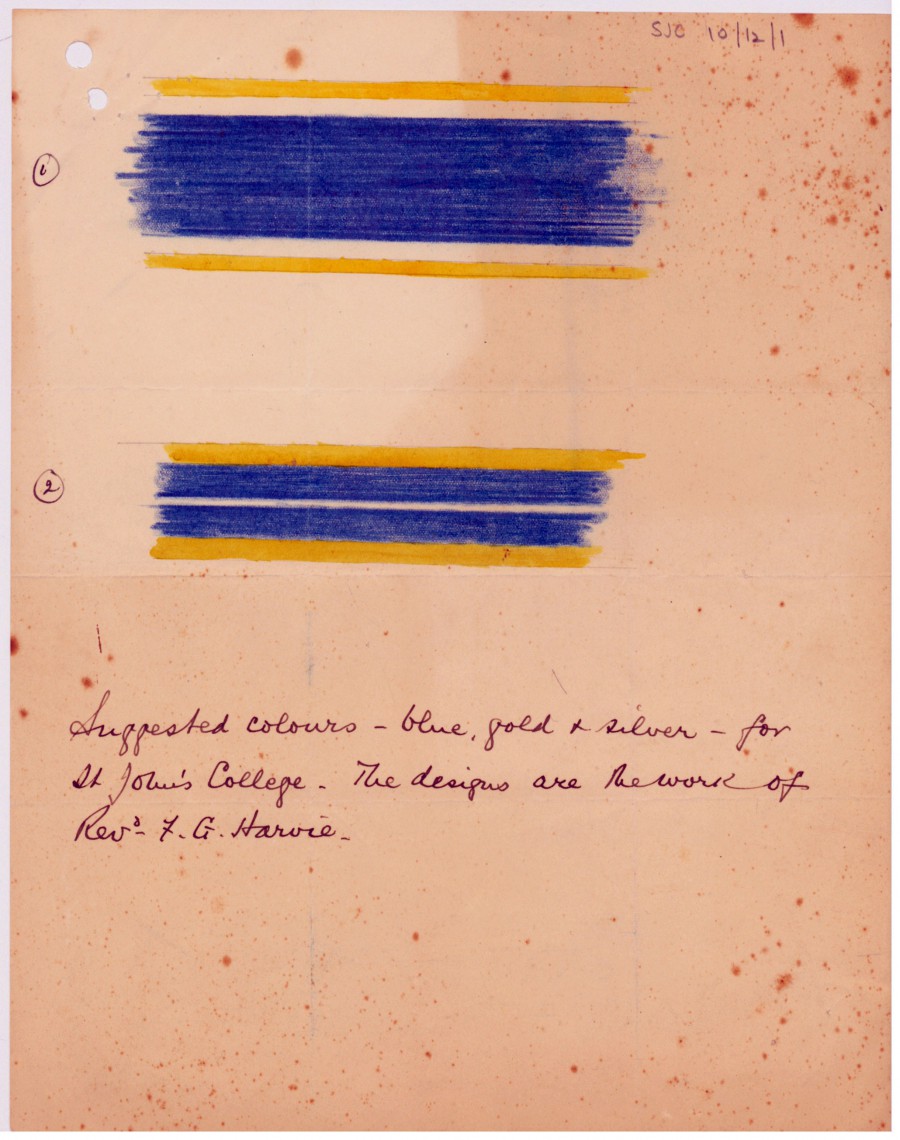 SJC 10/12/1
1
2
Suggested colours - blue, gold & silver - for
St John's College. The designs are the work of
Revd- F. G. Harvie.